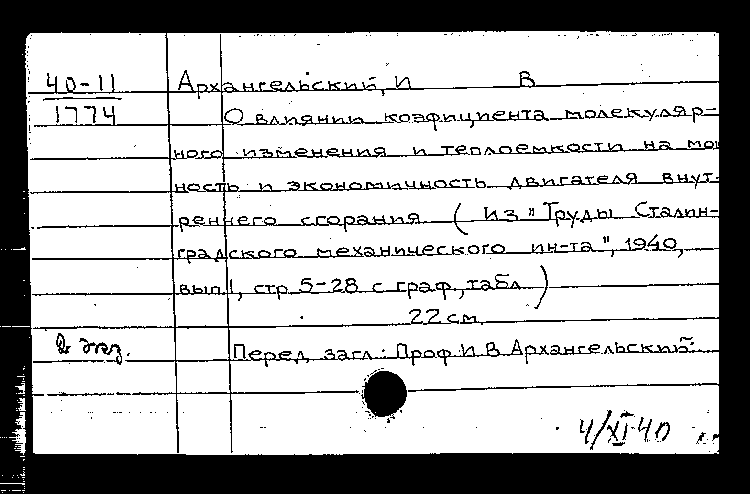 40-11 Архангельский, И В
1774 О влиянии коэфициента молекуляр-
ного изменения и теплоемкости на мо
ность и экономичность двигателя внут-
реннего сгорания (Из "Труды Сталин-
градского механического ин-та", 1940,
вып.1, стр 5-28 с граф., табл.)
22 см.
2 экз. Перед загл.: Проф И В Архангельский.
4/XI 40